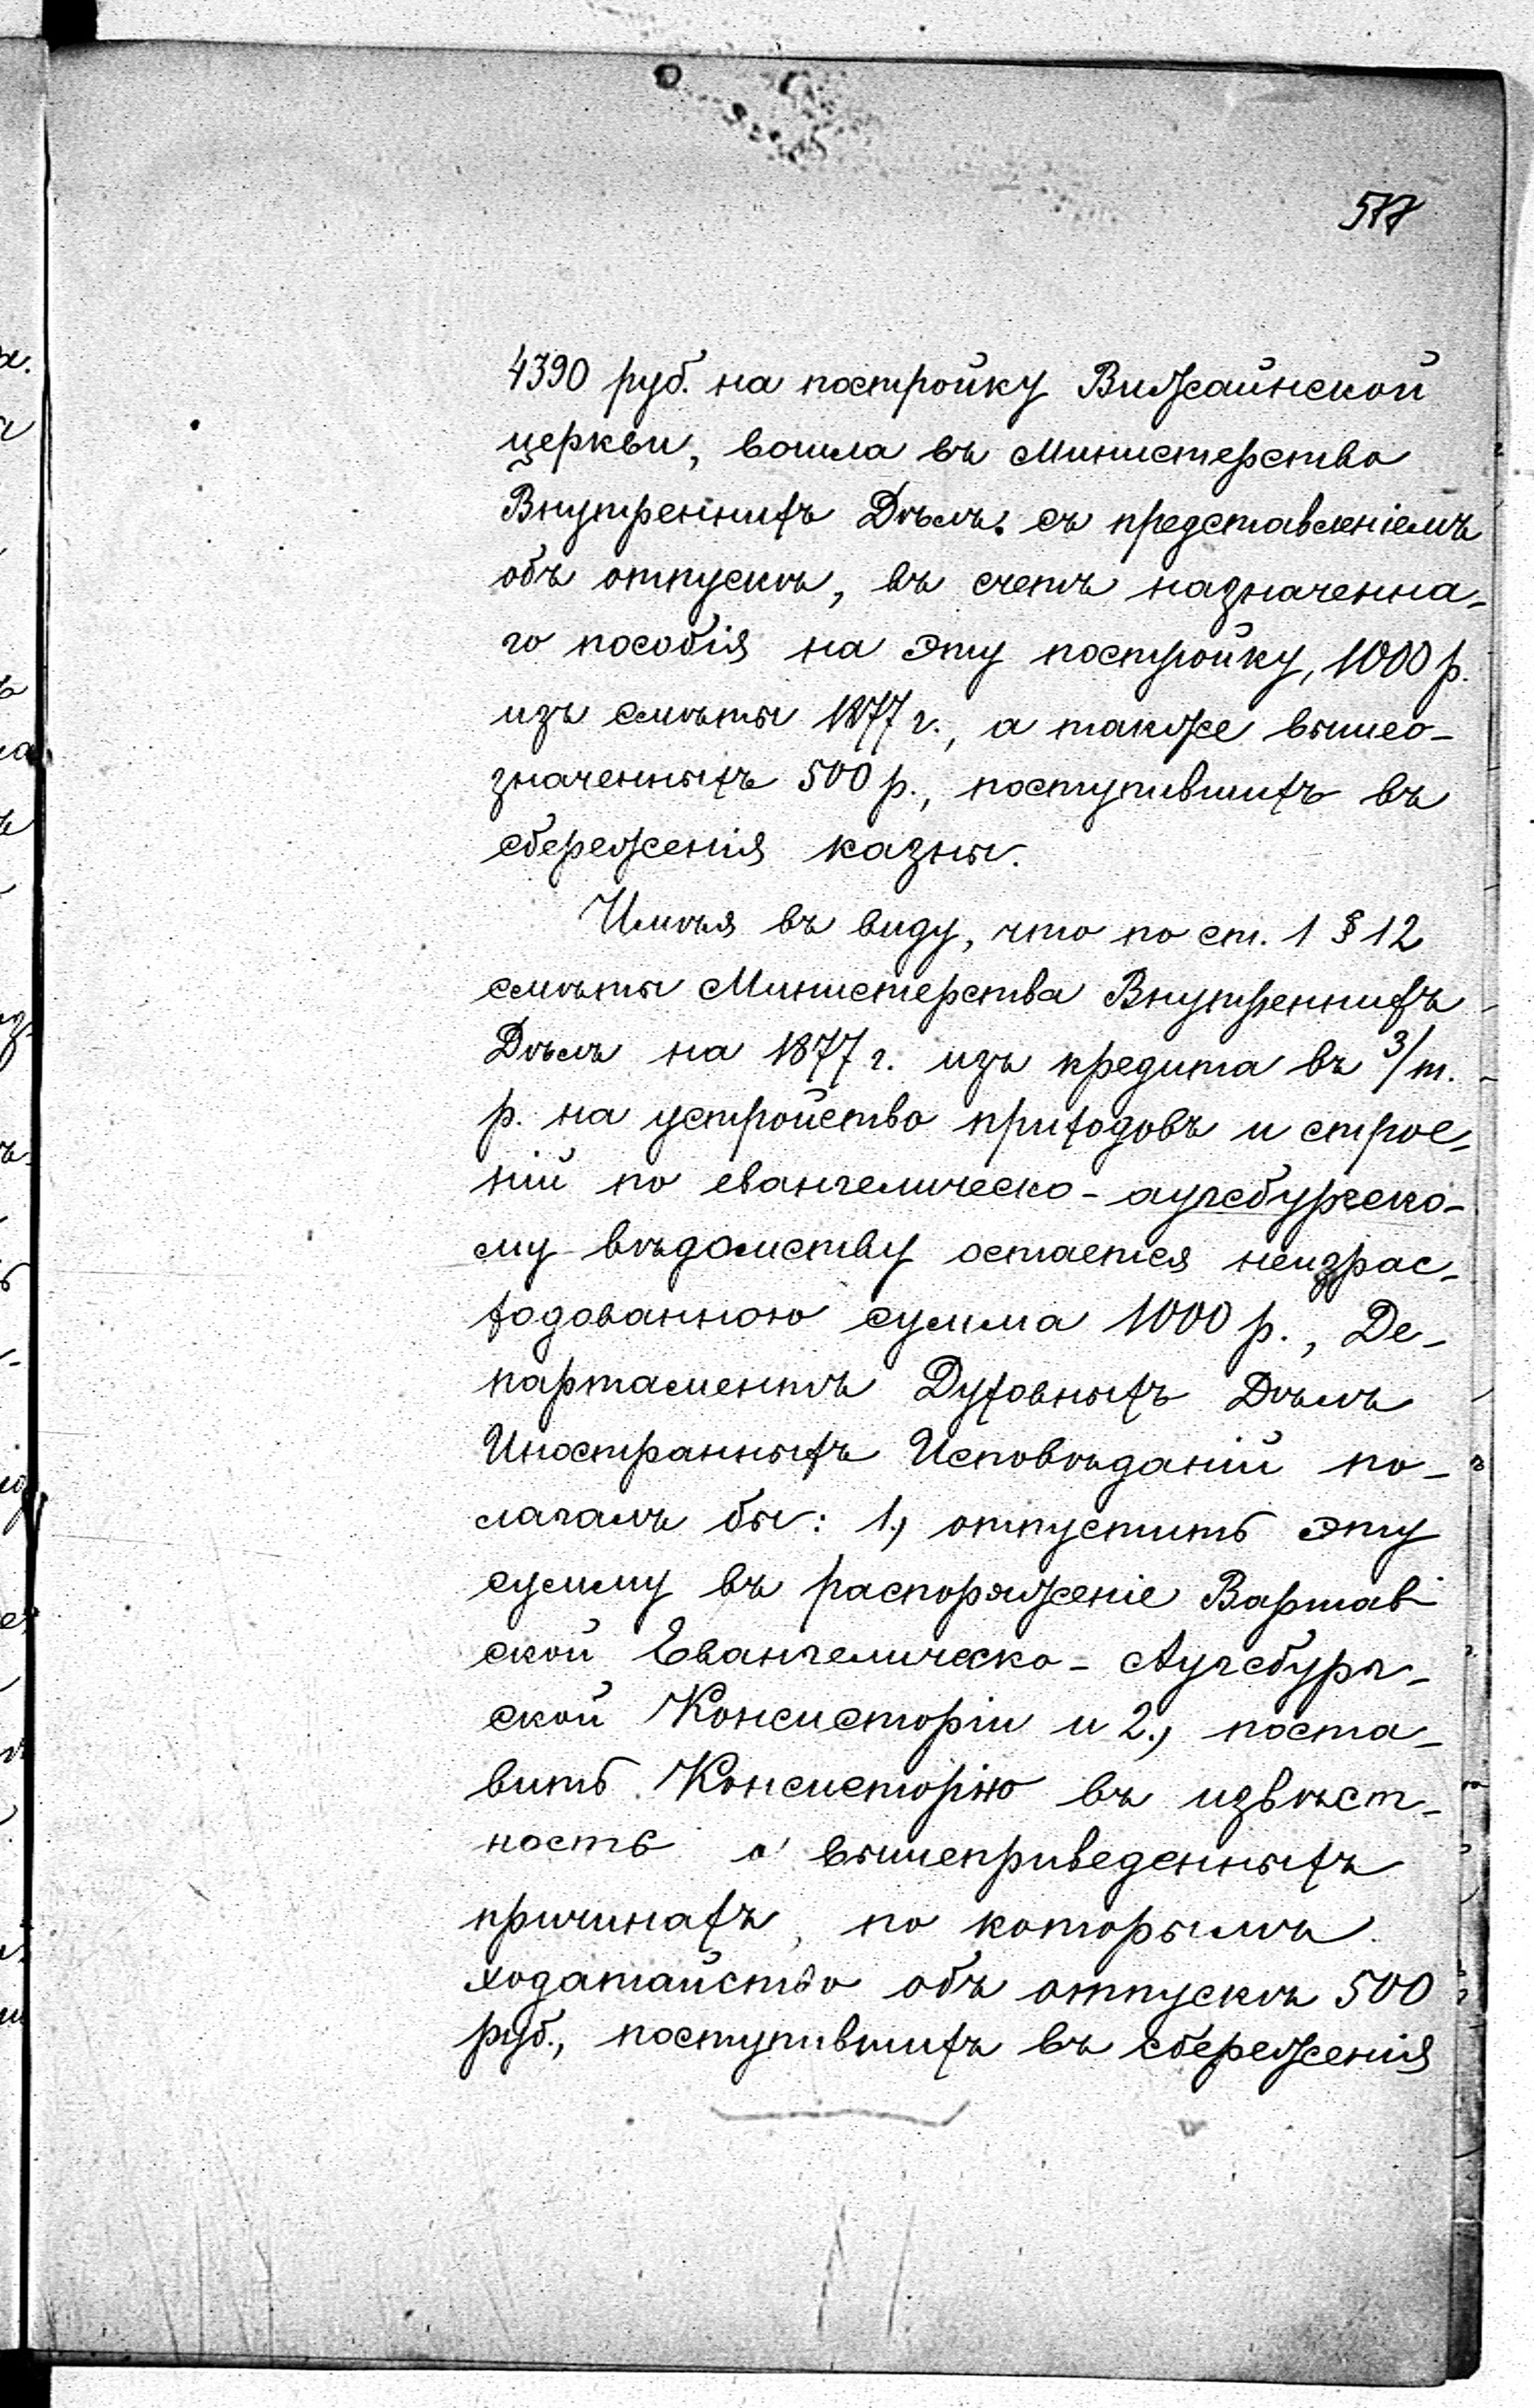 577
4390 руб. на постройку Вижайнской
церкви, вошла въ Министерство
Внутреннихъ Дѣлъ. съ представленіемъ
объ отпускѣ, въ счетъ назначенна-
го пособія на эту постройку, 1000 р.
изъ смѣты 1877 г., а также вышео-
значенныхъ 500 р., поступившихъ въ
сбереженія казны.
Имѣя въ виду, что по ст. 1 § 12
смѣты Министерства Внутреннихъ
Дѣлъ на 1877 г. изъ кредита въ 3/т.
р. на устройство приходовъ и строе-
ній по евангелическо-аугсбургско-
му вѣдомству остается неизрас-
ходованною сумма 1000 р., Де-
партаментъ Духовныхъ Дѣлъ
Иностранныхъ Исповѣданій по-
лагалъ бы: 1, отпустить эту
сумму въ распоряженіе Варшав-
ской Евангелическо-Аугсбург-
ской Консисторіи и 2, поста-
вить Консисторію въ извѣст-
ность о вышеприведенныхъ
причинахъ, по которымъ
ходатайство объ отпускѣ 500
руб., поступившихъ въ сбереженія